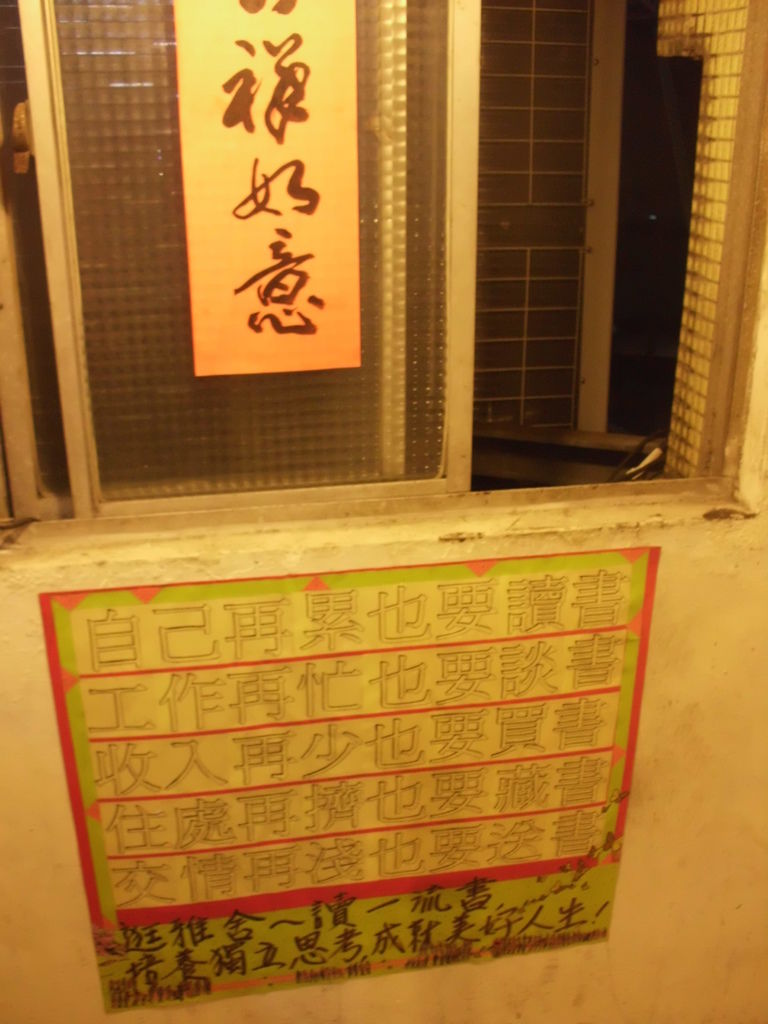 祥如意
自己再累也要讀書
工作再忙也要談書
收入再少也要買書
住處再擠也要藏書
交情再淺也要送書
逛雅舍～讀一流書
培養獨立思考,成就美好人生!